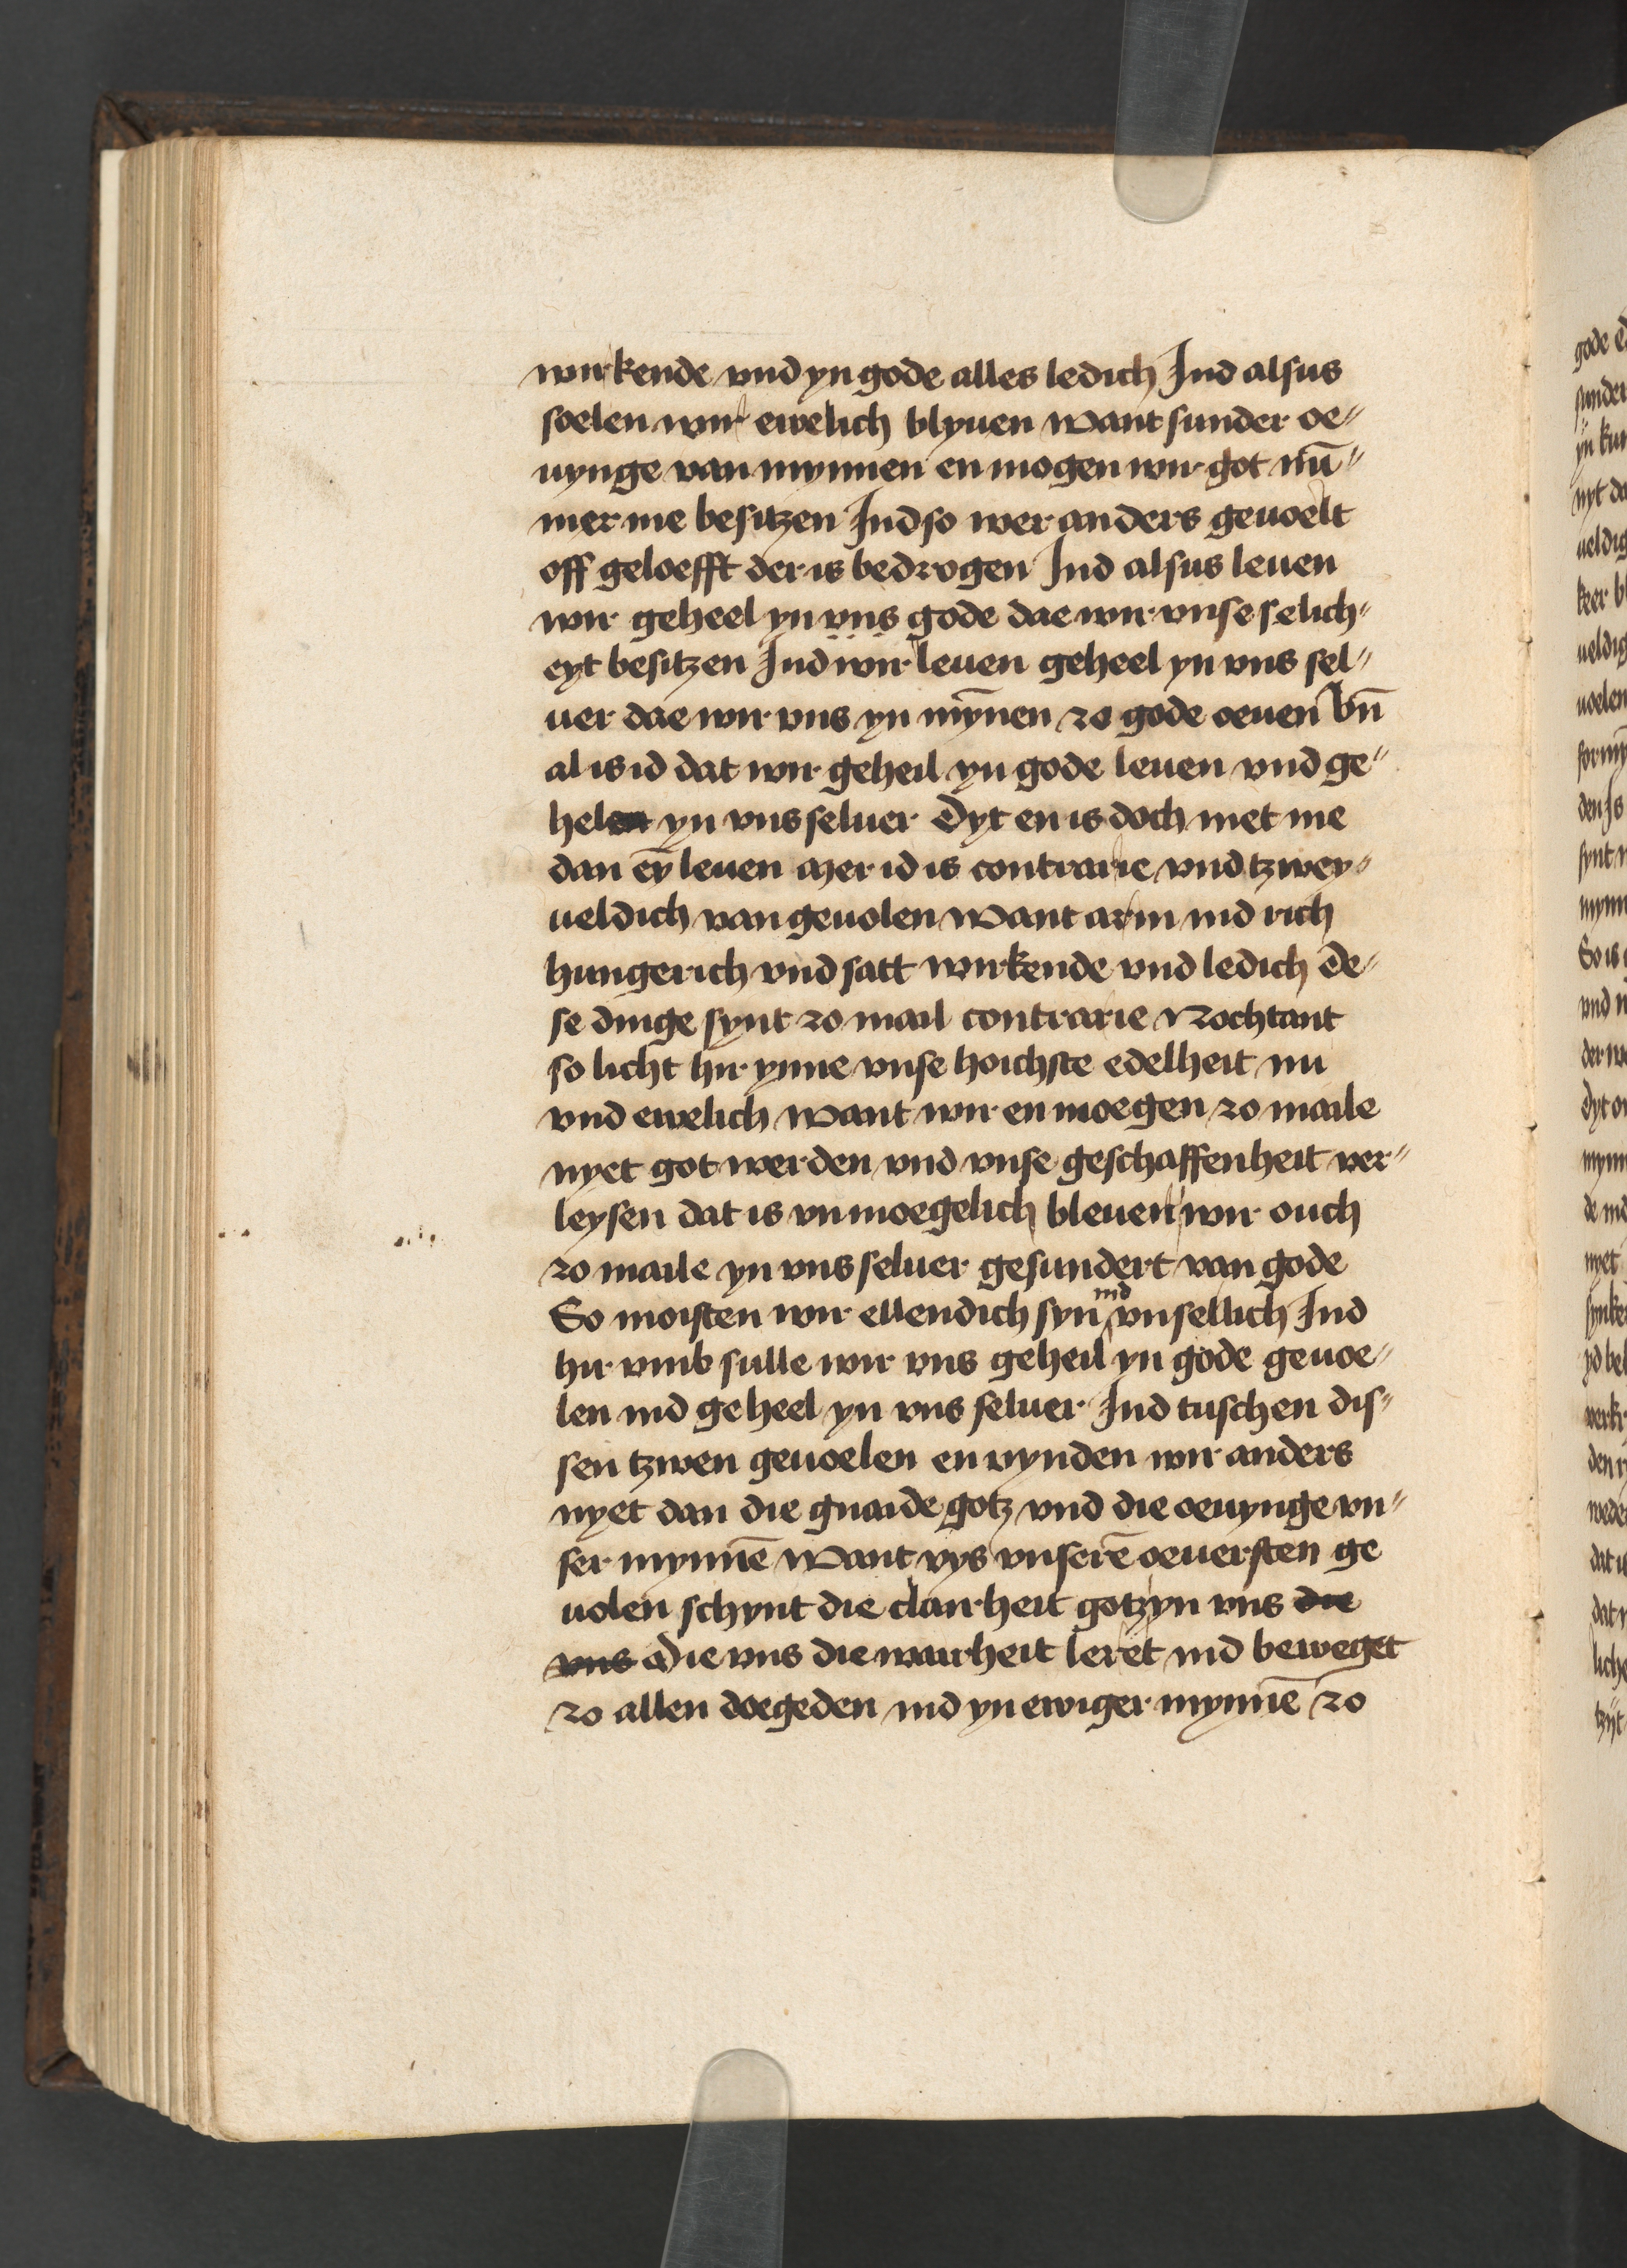 wirkende vnd yn gode alles ledich Ind alsus
soelen wir ewelich blyuen Want sunder oe⸗
uynge van mynnen en mogen wir got nū⸗
mer me besitzen Ind so wer anders geuoelt
off geloefft der is bedrogen Ind alsus leuen
wir geheel yn vns gode dae wir vnse selich⸗
eyt besitzen Ind wir leuen geheel yn vns sel⸗
uer dae wir vns yn mȳnen zo gode oeuen Vn̄
al is id dat wir geheil yn gode leuen vnd ge⸗
hel yn vns seluer Dyt en is doch niet me
dan eȳ leuen Mer id is contrarie vnd tzwey⸗
ueldich van geuolen Want arm ind rich
hungerich vnd satt wirkende vnd ledich De⸗
se dinge synt zo mail contrarie Nochtant
so licht hir ynne vnse hoichste edelheit nu
vnd ewelich Want wir en moegen zo maile
nyet got werden vnd vnse geschaffenheit ver⸗
leysen dat is vnmoegelich bleuen wir ouch
zo maile yn vns seluer gesundert van gode
So moisten wir ellendich syn ind vnsellich Ind
hir vmb sulle wir vns geheil yn gode geuoe⸗
len ind geheel yn vns seluer Ind tuschen dis⸗
sen tzwen geuoelen en vynden wir anders
nyet dan die gnaide gotz vnd die oeuynge vn⸗
ser mynnē Want vys vnserē oeuersten ge
uolen schynt die clairheit gotz yn vns die
vns Die vns die wairheit leret ind beweget
zo allen doegeden ind yn ewiger mynnē zo